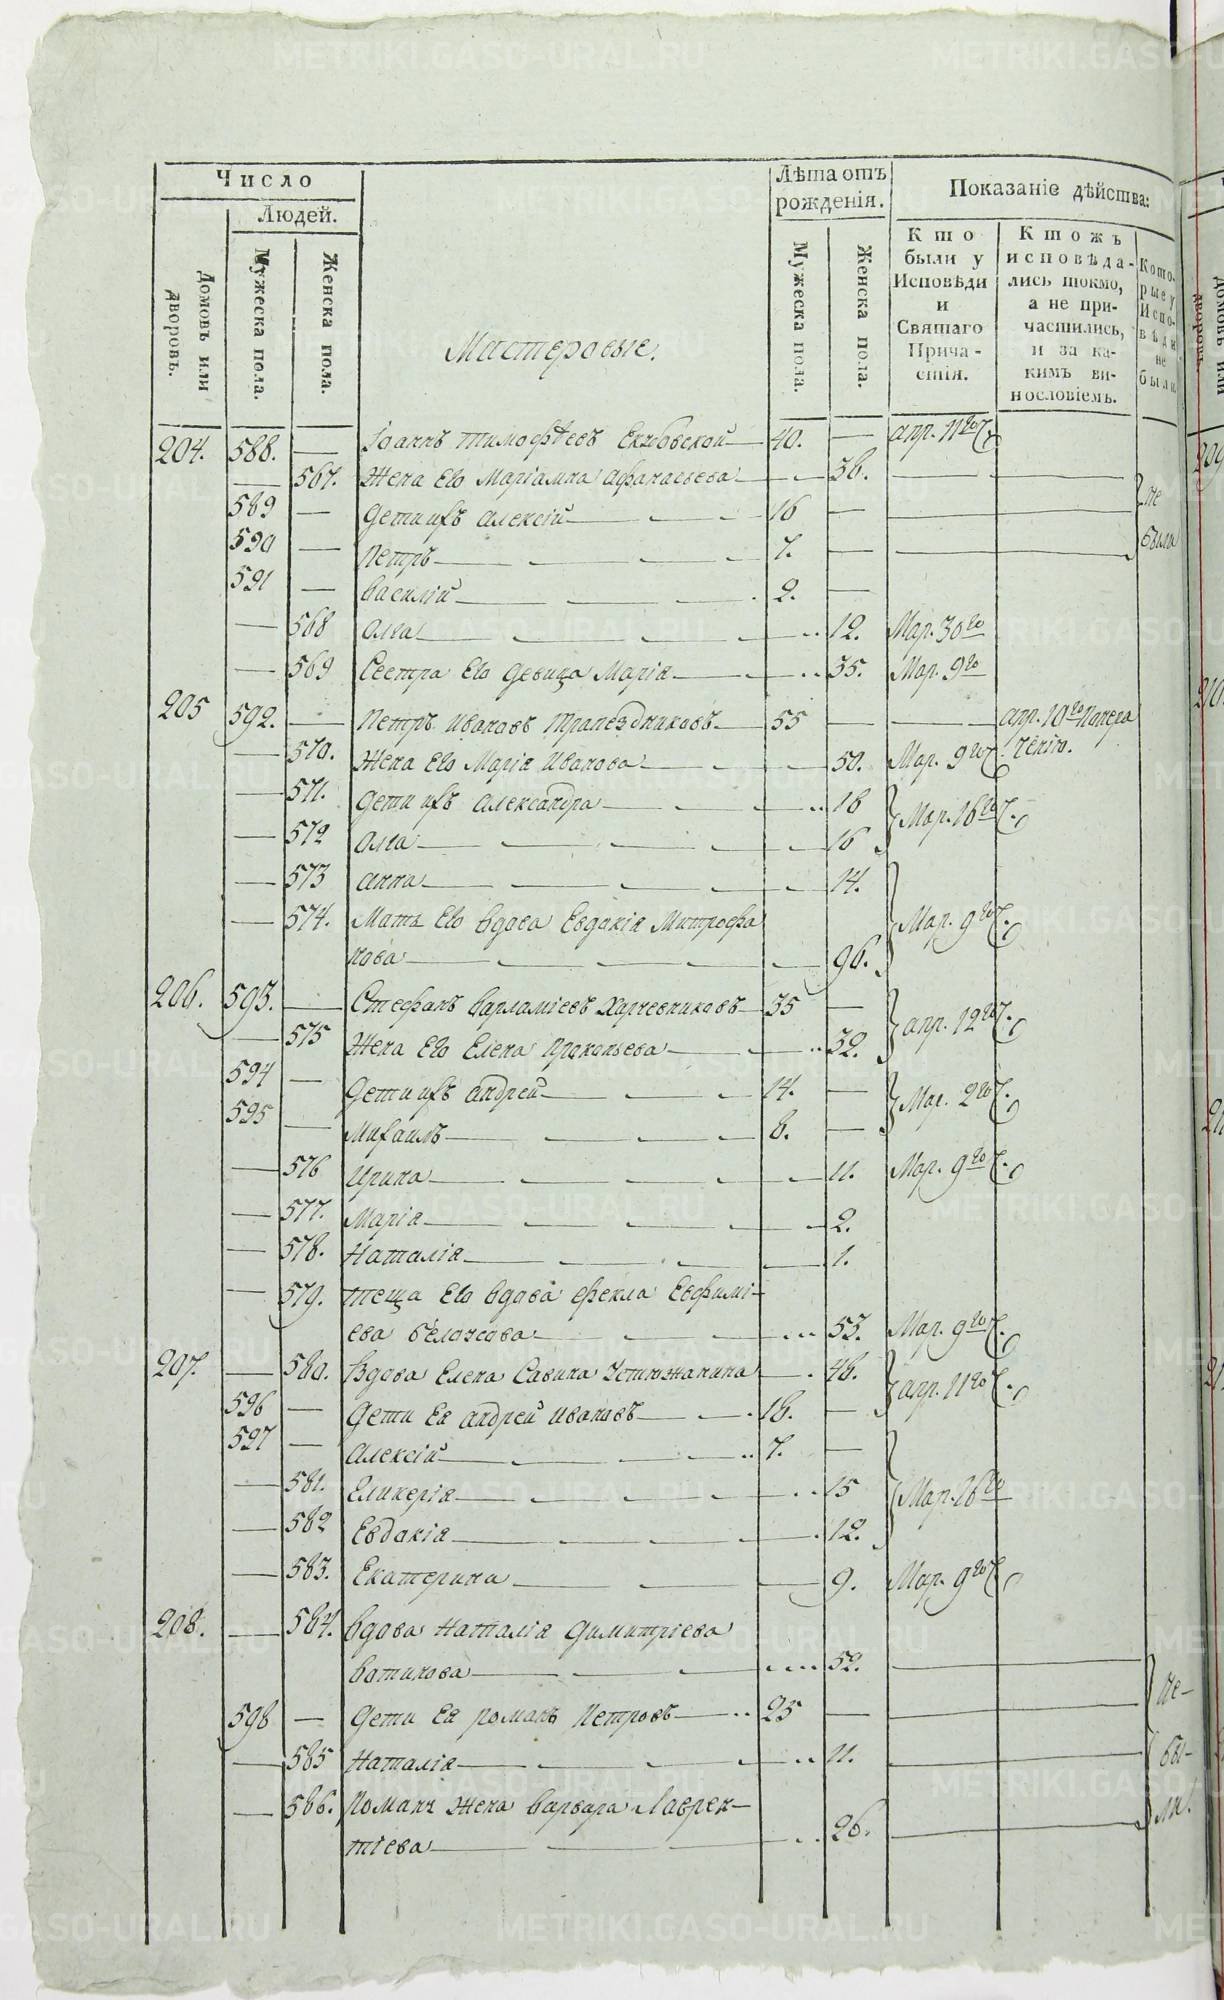 Число
Людей.
Домовъ или дворовъ.
Мужеска пола.
Женска пола.
Мастеровые.
Лѣта отъ рожденія.
Мужеска пола.
Женска пола.
Показаніе дѣйства:
Кто были у Исповѣди и Святаго Причастія.
Ктожъ исповѣдались токмо, а не причастились, и за какимъ винословіемъ.
Которые у Исповѣди не были
204. 588. — Іоаннъ Тимофѣевъ 40. — апр. 11го
— 567. Жена Его Маріамна Афанасьева — 38. — не
589 — Дети ихъ Алексій 16 —
590 — Петръ 7. — были
591 — Василій 2. —
— 568 Олга 12. Мар. 30го
— 569 Сестра Его девица Марія 35. Мар. 9го
205 592. — Петръ Ивановъ Трапезниковъ 55 — — апр. 10го
— 570. Жена Его Марія Иванова 50. Мар. 9го
— 571. Дети ихъ Александра 18 Мар. 16го
— 572 Олга 16
— 573 Анна 14.
— 574. Мать Его вдова Евдокія Митрофа Мар. 9го
нова 96.
206. 593. — Стефанъ Варламіевъ Харчевниковъ 35 — апр. 12го
— 575 Жена Его Елена Прокопьева 32.
594 — Дети ихъ Андрей 14. — Мар. 2го
595 — Михаилъ 8. —
— 576 Ирина 11. Мар. 9го
— 577. Марія 2.
— 578. Наталія 1.
— 579. Теща Его вдова Фекла Евфимі-
ева Белоусова 53. Мар. 9го
207. — 580. Вдова Елена Савина Устюжанина 48. апр. 11го
596 — Дети Ея Андрей Ивановъ 18. —
597 — Алексій 7. —
— 581. Гликерія 15 Мар. 16го
— 582 Евдокія 12.
— 583. Екатерина 9. Мар. 9го
208. — 584. Вдова Наталія Димитріева
Вотинова 52. не-
598 — Дети Ея Романъ Петровъ 25 —
— 585 Наталія 11. бы-
— 586. Роману жена Варвара Лаврен- ли.
тіева 26.